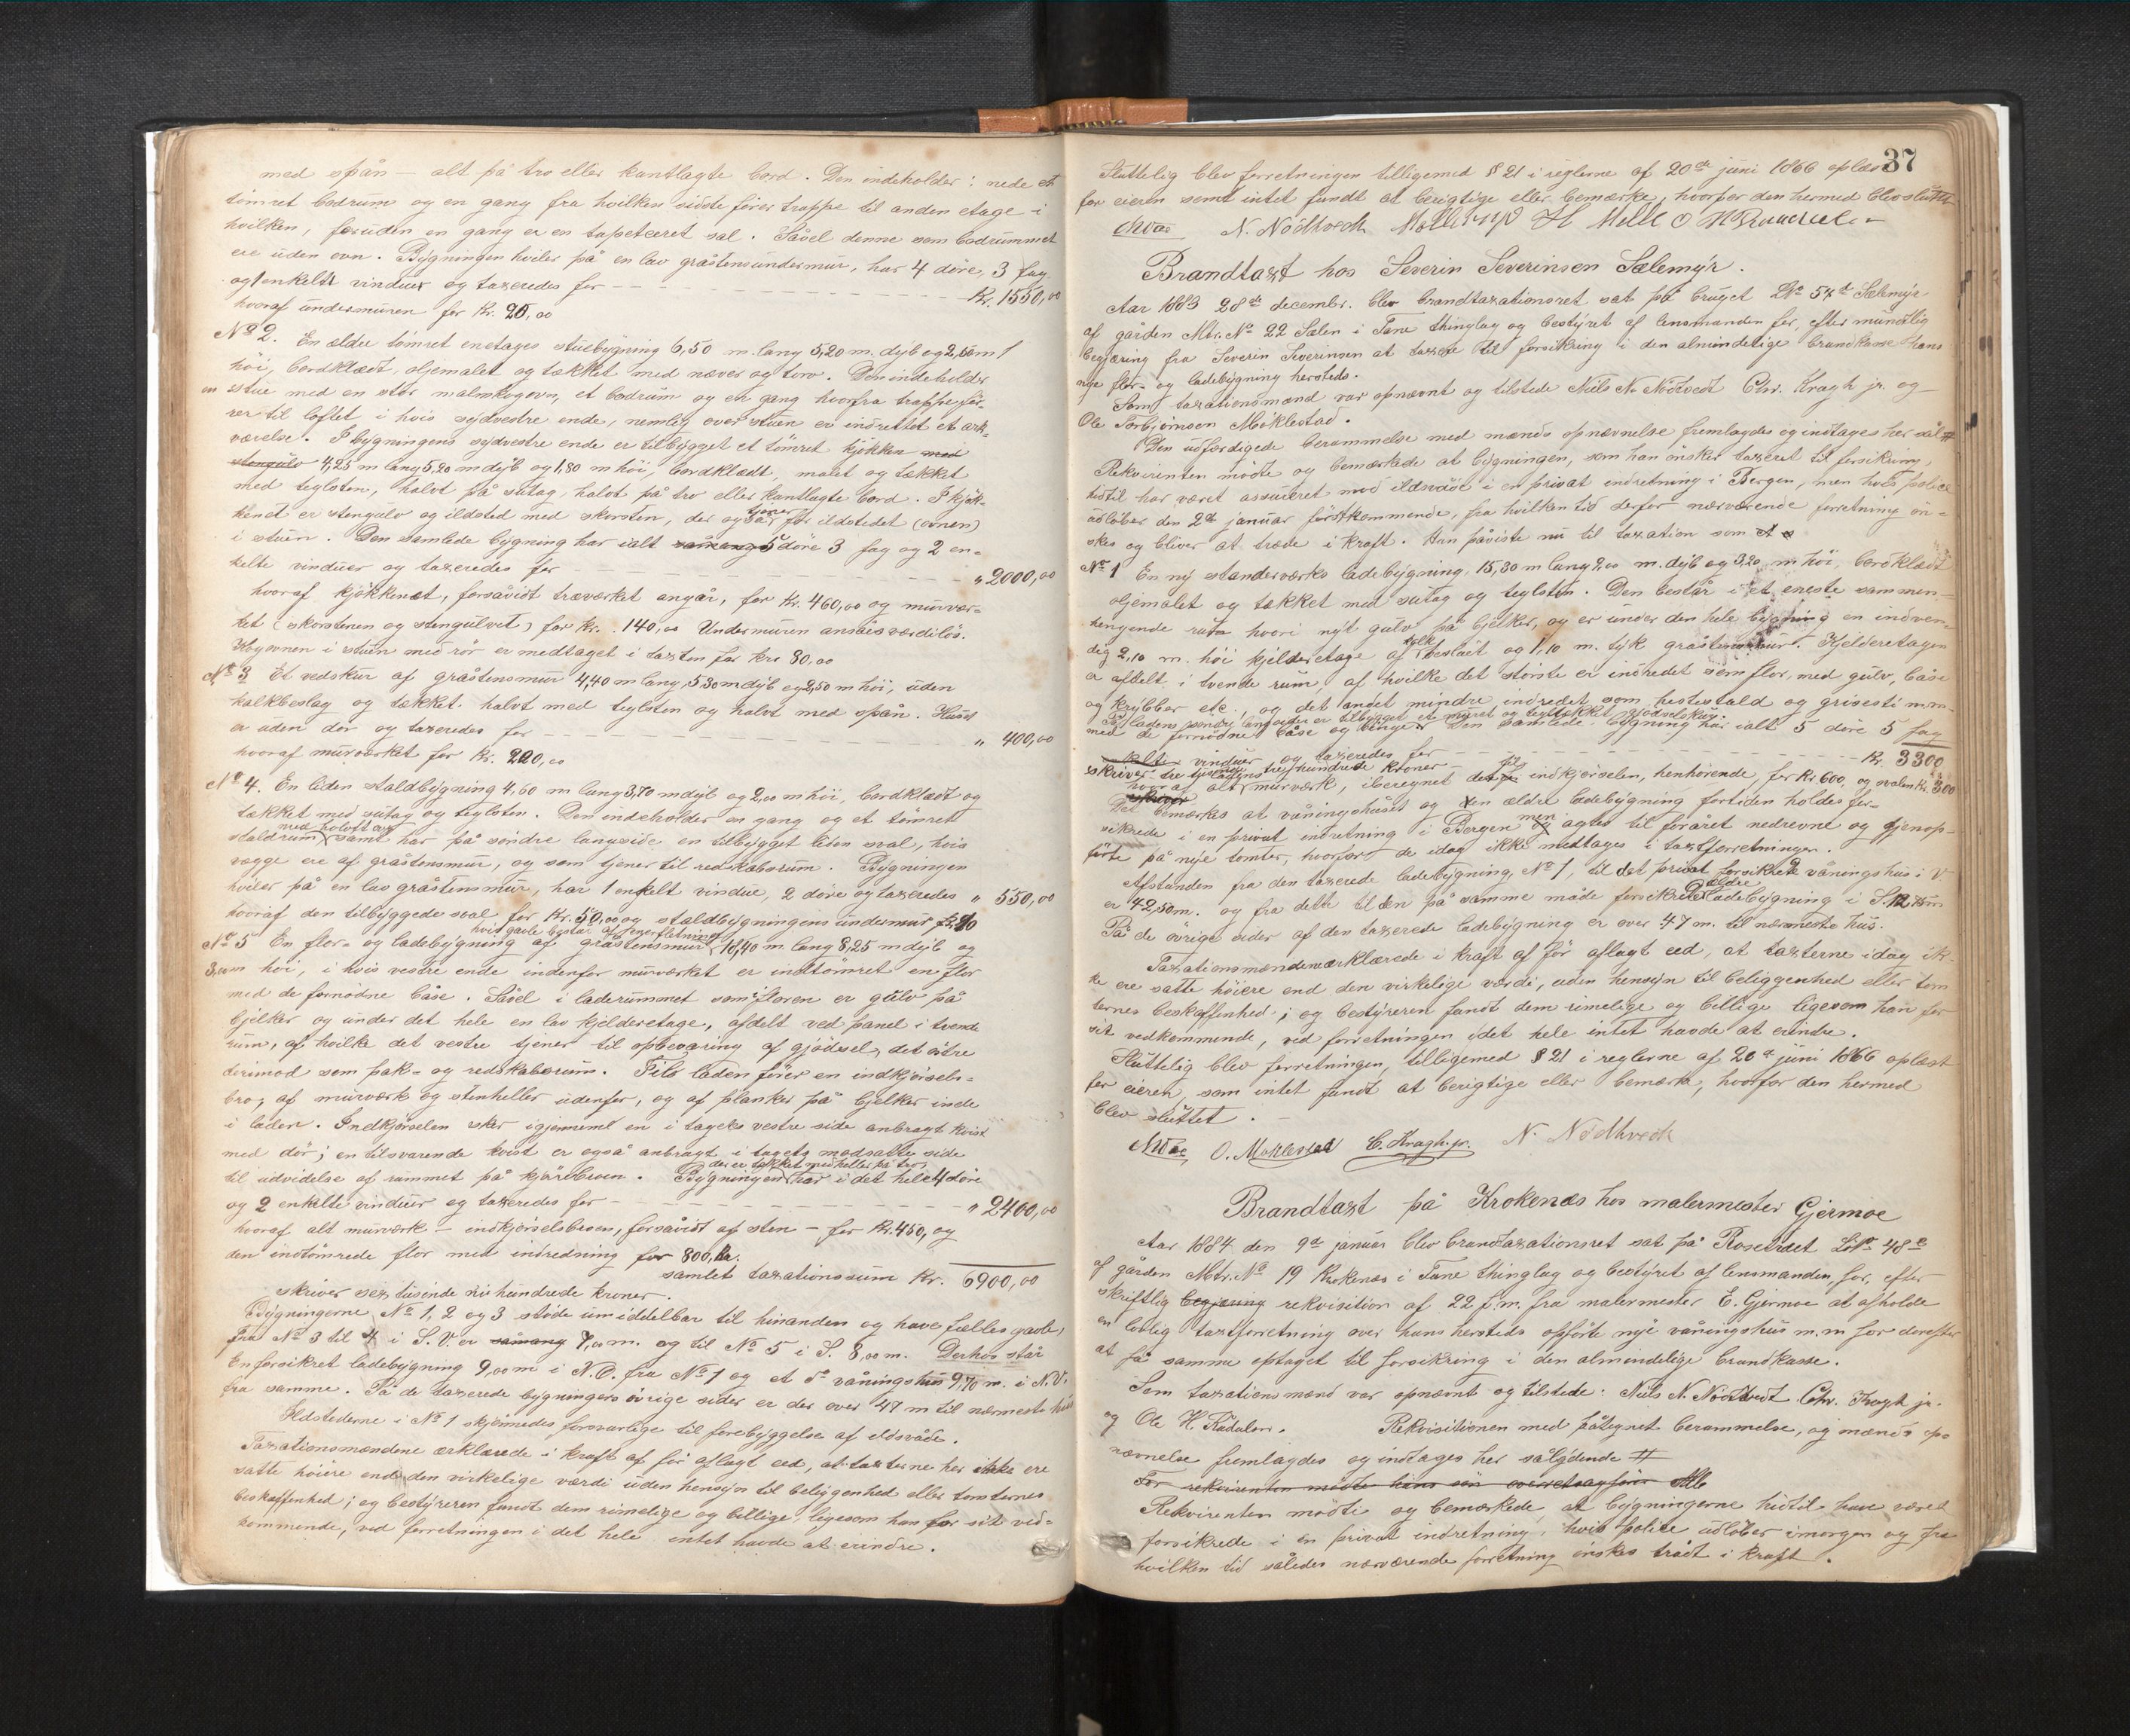 med spån – alt på tro eller kantlagte bord. Den indeholder: nede et
tömret bodrum og en gang fra hvilken sidste förer trappe til anden etage – i
hvilken, foruden en gang er en tapetseret sal. Såvel denne som bodrummet
ere uden ovn. Bygningen hviler på en lav gråstensundermur, har 4 döre, 3 fag
og 1 enkelt vinduer og taxeredes for Kr. 1550,00
hvoraf undermuren for Kr. 20,00
No 2. En ældre tömret enetages stuebygning 6,50 m. lang 5,20 m. dyb og 2,50 m
höi, bordklædt, oljemalet og tækket med næver og torv. Den indeholder
en stue med en stor malmkogovn, et bodrum og en gang hvorfra trappe fö-
rer til loftet i hvis sydvestre ende, nemlig over stuen er indrettet et ark-
værelse. I bygningens sydvestre ende er tilbygget et tömret kjökken med
stengulv 4,25 m lang 5,20 m dyb og 1,80 m höi, bordklædt, malet og tækket
med teglsten, halvt på sutag, halvt på tro eller kantlagte bord. I kjök-
kenet er stengulv og ildsted med skorsten, der også tjener for ildstedet (ovnen)
i stuen. Den samlede bygning har ialt 5 döre 3 fag og 2 en-
kelte vinduer og taxeredes for " 2000,00
hvoraf kjökkenet, forsåvidt træværket angår, for Kr. 460,00 og murvær-
ket (skorstenen og stengulvet) for Kr. 140,00 Undermuren ansåes værdilös.
Kogovnen i stuen med rör er medtaget i taxten for kr 80,00
No 3 Et vedskur af gråstensmur 4,40 m lang, 5,30 m dyb og 2,50 m höi, uden
kalkbeslag og tækket halvt med teglsten og halvt med spån. Huset
er uden dör og taxeredes for " 400,00
hvoraf murværket for Kr. 220,00
No 4. En liden staldbygning 4,60 m lang 3,70 m dyb og 2,00 m höi, bordklædt og
tækket med sutag og teglsten. Den indeholder en gang og et tömret
staldrum med höloft over samt har på söndre langside en tilbygget liden sval, hvis
vægge ere af gråstensmur, og som tjener til redskabsrum. Bygningen
hviler på en lav gråstensmur, har 1 enkelt vindue, 2 döre og taxeredes " 550,00
hvoraf den tilbyggede sval for Kr. 50,00 og staldbygningens undermur
hvis gavle består af
No 5 En flor- og ladebygning af gråstensmur 16,40 m lang 8,25 m dyb og
3,00 m höi, i hvis vestre ende indenfor murværket er indtömret en flor
med de fornödne båse. Såvel i laderummet som floren er gulv på
bjelker og under det hele en lav kjelderetage, afdelt ved panel i tvende
rum, af hvilke det vestre tjener til opbevaring af gjödsel, det östre
derimod som pak- og redskabsrum. Til laden förer en indkjörsels-
bro, af murværk og stenheller udenfor, og af planker på bjelker inde
i laden. Indkjörselen sker igjennem en i tagets vestre side anbragt kvist
med dör; en tilsvarende kvist er også anbragt i tagets modsatte side
til udvidelse af rummet på kjörebroen. Bygningen der er tækket med heller på tro har i det hele 4 döre
og 2 enkelte vinduer og taxeredes for " 2400,00
hvoraf alt murværk – indkjörselsbroen, forsåvidt af sten – for Kr. 450, og
den indtömrede flor med indredning for 800 kr.
samlet taxationssum Kr. 6900,00
skriver sex tusinde ni hundrede kroner.
Bygningerne No 1, 2 og 3 stöde umiddelbar til hinanden og have fælles gavle,
fra No 3 til 4 i S.V. er 7,00 m. og til No 5 i S. 8,00 m. Derhos står
En forsikret ladebygning 9,00 m i N.Ö. fra No 1 og et do våningshus 9,70 m. i N.V.
fra samme. På de taxerede bygningers övrige sider er der over 47 m til nærmeste hus
Ildstederne i No 1 skjönnedes forsvarlige til forebyggelse af ildsvåde.
Taxationsmændene erklærede i kraft af för aflagt eed, at taxterne her ikke ere
satte höiere end den virkelige værdi uden hensyn til beliggenhed eller tomternes
beskaffenhed; og bestyreren fandt dem rimelige og billige, ligesom han for sit ved-
kommende, ved forretningen i det hele intet havde at erindre.
37
Sluttelig blev forretningen tilligemed § 21 i reglerne af 20de juni 1866 oplæst
for eieren som intet fandt at berigtige eller bemærke, hvorfor den hermed blev sluttet
N. Nödtvedt
Brandtaxt hos Severin Severinsen Sælemyr.
Aar 1883 28de decembr. blev brandtaxationsret sat på bruget LNo 54 Sælemyr
af gården Mtr. No 22 Sælen i Fane thinglag og bestyret af lensmanden for, efter mundtlig
begjæring fra Severin Severinsen at taxere til forsikring i den almindelige brandkasse hans
nye flor- og ladebygning hersteds.
Som taxationsmænd var opnævnt og tilstede Niels N. Nödtvedt Chr. Kragh jr. og
Ole Torbjörnsen Möklestad.
Den udfærdigede berammelse med mænds opnævnelse fremlagdes og indtages her sål #
Rekvirenten mödte og bemærkede at bygningen, som han önsker taxeret til forsikring,
hidtil har været assureret mod ildsvåde i en privat indretning i Bergen, men hvis police
udlöber den 2de januar förstkommende, fra hvilken tid derfor nærværende forretning ön-
skes og bliver at træde i kraft. Han påviste nu til taxation som
No 1 En ny standerværks ladebygning, 15,30 m lang 9,00 m. dyb og 3,20 m. höi, bordklædt
oljemalet og tækket med sutag og teglsten. Den består i et eneste sammen-
hengende rum hvori nyt gulv på bjelker, og er under den hele bygning en indven-
dig 2,10 m. höi kjelderetage af kalkbeslået og 1,10 m. tyk gråstensmur. Kjelderetagen
er afdelt i tvende rum, af hvilke det störste er indredet som flor, med gulv, båse
og krybber etc., og det andet mindre indredet som hestestald og grisesti m.m.
På ladens söndre langside er tilbygget et muret og tegltækket gjödselskur.
med de fornödne båse og binger. Den samlede bygning har ialt 5 döre 5 fag
vinduer og taxeredes for Kr. 3300
skriver tre tusinde tre hundrede kroner
hvoraf alt murværk, iberegnet det til indkjörselen, henhörende, for Kr 600, og svalen Kr. 300
Det bemærkes at våningshuset og den ældre ladebygning fortiden holdes for-
sikrede i en privat indretning i Bergen men agtes til foråret nedrevne og gjenop-
förte på nye tomter, hvorfor de idag ikke medtages i taxtforretningen.
Afstanden fra den taxerede ladebygning No 1, til det privat forsikrede våningshus i V
er 42,50 m. og fra dette til den på samme måde forsikrede ældre ladebygning i S.
På de övrige sider af den taxerede ladebygning er over 47 m. til nærmeste hus.
Taxationsmændene erklærede i kraft af för aflagt eed, at taxterne idag ik-
ke ere satte höiere end den virkelige værdi, uden hensyn til beliggenhed eller tom
ternes beskaffenhed; og bestyreren fandt dem rimelige og billige ligesom han for
sit vedkommende, ved forretningen i det hele intet havde at erindre.
Sluttelig blev forretningen, tilligemed § 21 i reglerne af 20de juni 1866 oplæst
for eieren, som intet fandt at berigtige eller bemærke, hvorfor den hermed
blev sluttet.
O. Möklestad C. Kragh jr. N. Nödtvedt
Brandtaxt på Krokenæs hos malermester Gjermoe
Aar 1884 den 9de januar blev brandtaxationsret sat på Rosetræet LNo 48
af gården Mtr. No 19 Krokenæs i Fane thinglag og bestyret af lensmanden, for, efter
skriftlig begjæring rekvisition af 22 f.m. fra malermester E. Gjermoe at afholde
en lovlig taxtforretning over hans hersteds opförte nye våningshus m.m for derefter
at få samme optaget til forsikring i den almindelige brandkasse.
Som taxationsmænd var opnævnt og tilstede: Niels N. Nödtvedt Chr. Kragh jr.
og Ole H. Rådalen. Rekvisitionen med påtegnet berammelse, og mænds op-
nævnelse fremlagdes og indtages her sålydende #
For rekvirenten mödte hans sön overretssagförer
Rekvirenten mödte og bemærkede, at bygningerne hidtil have været
forsikrede i en privat indretning, hvis polise udlöber imorgen og fra
hvilken tid således nærværende forretning önskes trådt i kraft.